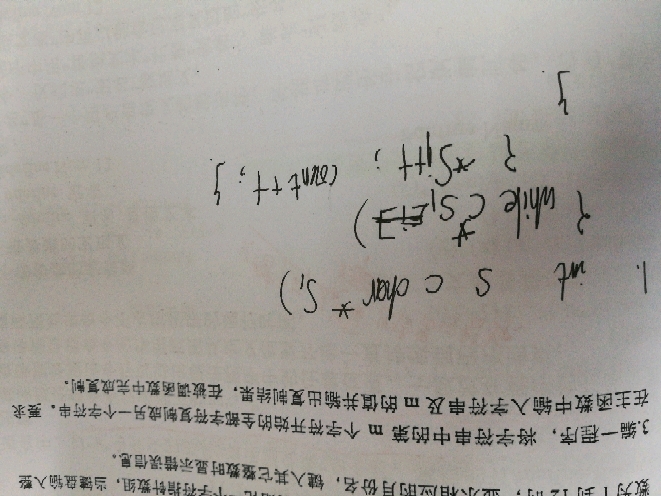 字符指针数组，当键盘输入整
数为 1 到 12 时，显示相应的月份名，键入其它整数时显示错误信息。
3.编一程序，将字符串中的第 m 个字符开始的全部字符复制成另一个字符串。要求
在主函数中输入字符串及 m 的值并输出复制结果，在被调函数中完成复制。
1. int S ( char *S1)
{ while ( *S1 )
{ *S1++ ; count++ ; }
}